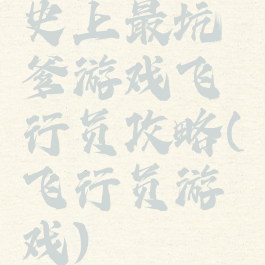 史上最坑
爹游戏飞
行员攻略(
飞行员游
戏)